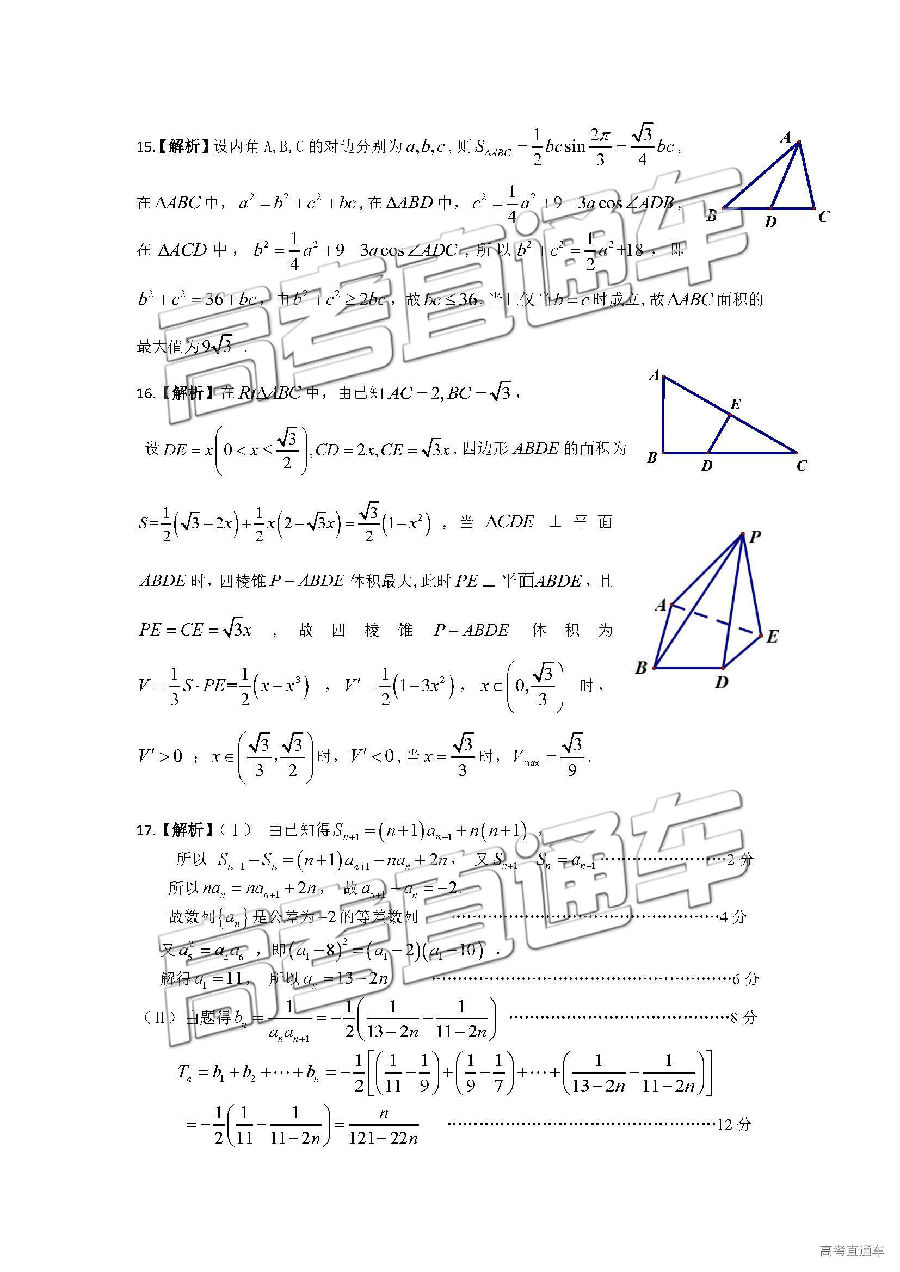 15.【解析】设内角 A,B,C 的对边分别为 a,b,c, 则 S△ABC = 1/2 bc sin 2π/3 = √3/4 bc,
在 ΔABC 中, a² = b² + c² + bc, 在 ΔABD 中, c² = 1/4 a² + 9 3a cos∠ADB,
在 ΔACD 中, b² = 1/4 a² + 9 3a cos∠ADC, 所以 b² + c² = 1/2 a² +18, 即
b² + c² = 36 + bc, 由 b² + c² ≥ 2bc, 故 bc ≤ 36, 当且仅当 b = c 时成立, 故 ΔABC 面积的
最大值为 9√3.
A
B
D
C
16.【解析】在 RtΔABC 中, 由已知 AC = 2, BC = √3,
设 DE = x(0 < x ≤ √3/2), CD = 2x, CE = √3x, 四边形 ABDE 的面积为
S=1/2(√3 − 2x) + 1/2 x(2 − √3x) = √3/2(1 − x²), 当 ΔCDE ⊥ 平面
ABDE 时, 四棱锥 P − ABDE 体积最大, 此时 PE ⊥ 平面ABDE, 且
PE = CE = √3x, 故四棱锥 P − ABDE 体积为
V = 1/3 S · PE=1/2(x − x³), V′ = 1/2(1 − 3x²), x∈(0, √3/3) 时,
V′ > 0; x∈(√3/3, √3/2) 时, V′ < 0, 当 x = √3/3 时, Vmax = √3/9.
A
E
B
D
C
P
A
E
B
D
17.【解析】(Ⅰ) 由已知得 Sn+1 = (n+1)an+1 + n(n+1),
所以 Sn+1 − Sn = (n+1)an+1 − nan + 2n, 又 Sn+1 Sn = an+1 ……………………2 分
所以 nan = nan+1 + 2n, 故 an+1 − an = −2,
故数列{an}是公差为 −2 的等差数列 ……………………4 分
又 a5² = a2a6, 即 (a1 − 8)² = (a1 − 2)(a1 − 10).
解得 a1 = 11, 所以 an = 13 − 2n ……………………6 分
(Ⅱ) 由题得 bn = 1/(an an+1) = −1/2(1/(13−2n) − 1/(11−2n)) ……………………8 分
Tn = b1 + b2 + ⋯ + bn = −1/2[(1/11 − 1/9) + (1/9 − 1/7) + ⋯ + (1/(13−2n) − 1/(11−2n))]
= −1/2(1/11 − 1/(11−2n)) = n/(121−22n) ……………………12 分
高考直通车
高考直通车
高考直通车